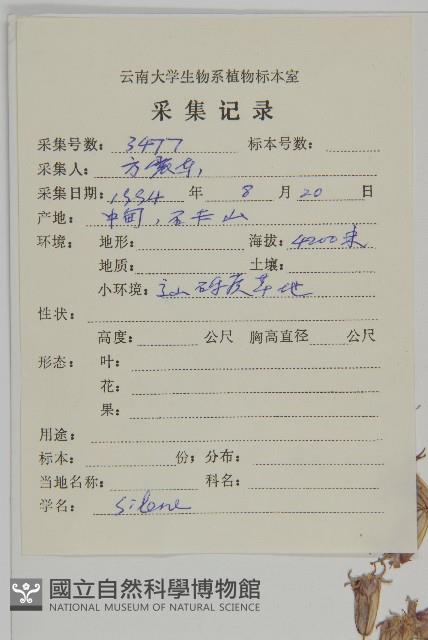 云南大学生物系植物标本室
采集记录
采集号数: 3477 标本号数:
采集人: 方
采集日期: 1994 年 8 月 20 日
产地: 中甸, 石卡山
环境: 地形: 海拔: 4200米
地质: 土壤:
小环境: 山砾质草地
性状:
高度: 公尺 胸高直径 公尺
形态: 叶:
花:
果:
用途:
标本: 份; 分布:
当地名称: 科名:
学名: Silene
國立自然科學博物館
NATIONAL MUSEUM OF NATURAL SCIENCE